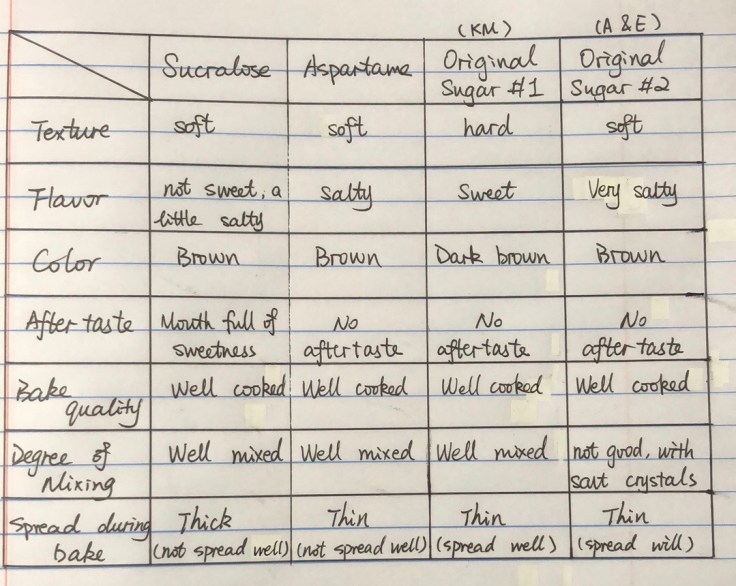 (KM) (A & E)
Sucralose Aspartame Original Sugar #1 Original Sugar #2
Texture soft soft hard soft
Flavor not sweet, a little salty Salty Sweet Very salty
Color Brown Brown Dark brown Brown
After taste Mouth full of sweetness No aftertaste No aftertaste No after taste
Bake quality Well cooked Well cooked Well cooked Well cooked
Degree of Mixing Well mixed Well mixed Well mixed not good, with saut crystals
Spread during bake Thick (not spread well) Thin (not spread well) Thin (spread well) Thin (spread will)